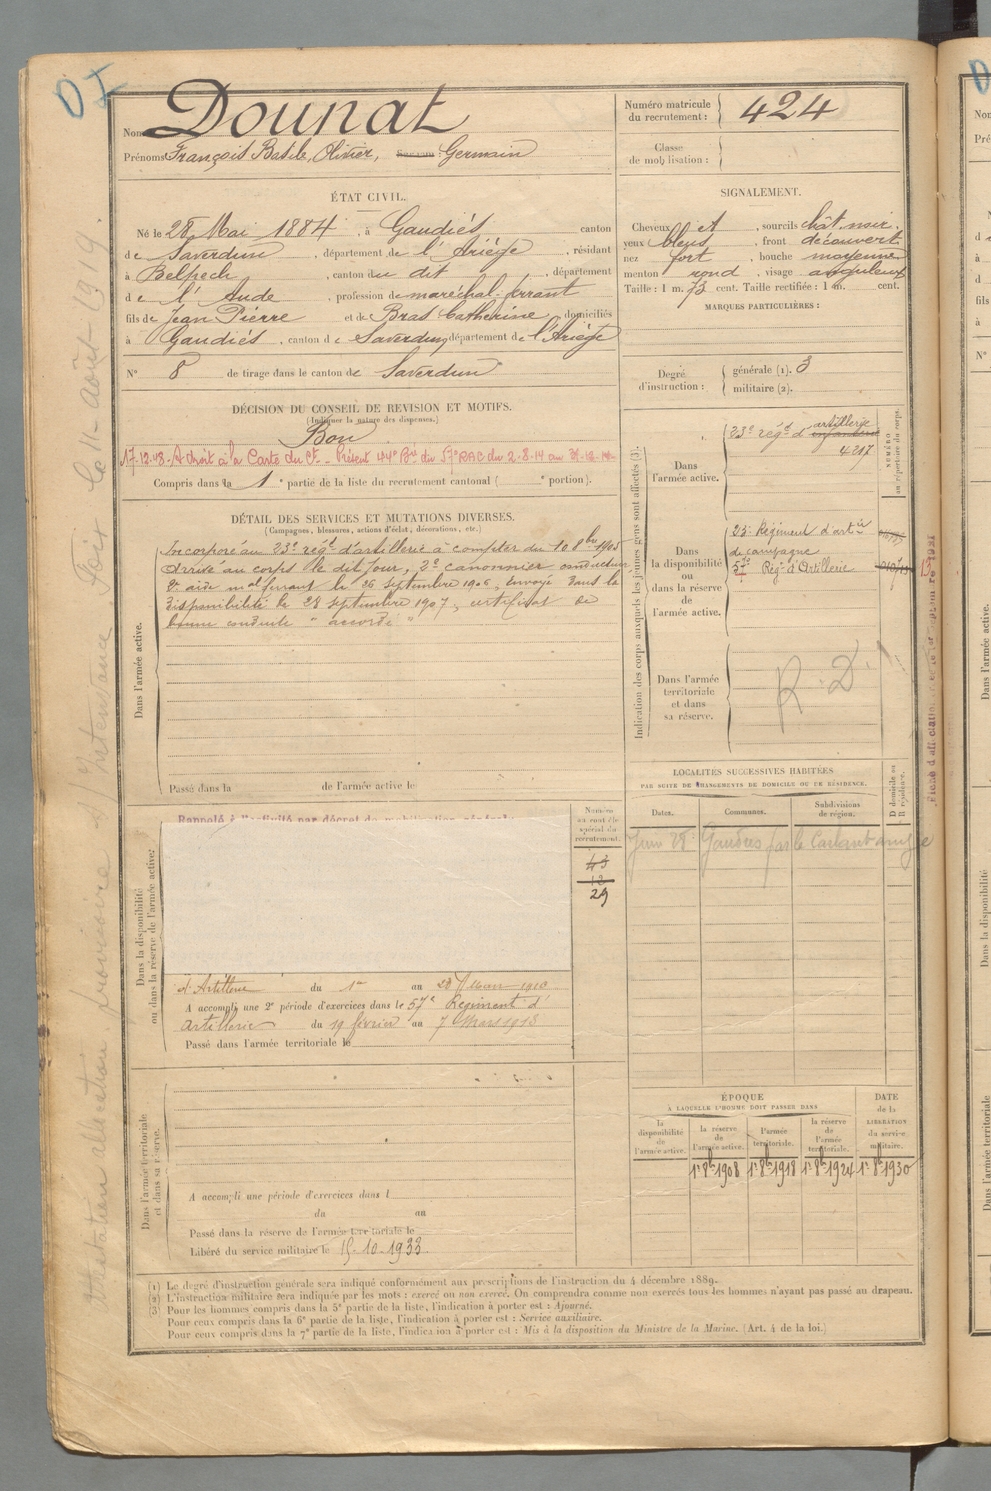 Nom Dounat
Prénoms François Basile, Olivier, Surnom: Germain
Numéro matricule
du recrutement: 424
Classe
de mobilisation:
ÉTAT CIVIL.
Né le 28 Mai 1884, à Gaudiés canton
de Saverdun, département de l'Ariège, résidant
à Belpech, canton du dit, département
de l'Aude, profession de maréchal-ferrant
fils de Jean Pierre et de Bras Catherine, domiciliés
à Gaudiés, canton de Saverdun, département de l'Ariège
N° 8 de tirage dans le canton de Saverdun
SIGNALEMENT.
Cheveux et, sourcils chât. noir.
yeux bleus, front découvert
nez fort, bouche moyenne
menton rond, visage anguleux
Taille: 1 m. 73 cent. Taille rectifiée: 1 m. cent.
MARQUES PARTICULIÈRES:
Degré
d'instruction:
générale (1). 3
militaire (2).
DÉCISION DU CONSEIL DE REVISION ET MOTIFS.
(Indiquer la nature des dispenses.)
Bon
A droit à la Carte du Ct - Présent 44e Bie du 57e RAC du 2-8-14 au
Compris dans la 1e partie de la liste du recrutement cantonal ( e portion).
DÉTAIL DES SERVICES ET MUTATIONS DIVERSES.
(Campagnes, blessures, actions d'éclat, décorations, etc.)
Dans l'armée active.
Incorporé au 23e régt d'artillerie à compter du 10 8bre 1905
Arrivé au corps le dit jour, 2e canonnier conducteur
aide mal ferrant le 26 septembre 1906, envoyé dans la
disponibilité le 28 septembre 1907, certificat de
bonne conduite "accordé"
Passé dans la de l'armée active le
Indication des corps auxquels les jeunes gens sont affectés (3).
NUMÉRO
au répertoire du corps.
Dans
l'armée active.
23e régt d'infanterie artillerie
4217
Dans
la disponibilité
ou
dans la réserve
de
l'armée active.
23e Régiment d'artie
de campagne
57e Régt d'Artillerie
Dans l'armée
territoriale
et dans
sa réserve.
R. D.
LOCALITÉS SUCCESSIVES HABITÉES
PAR SUITE DE CHANGEMENTS DE DOMICILE OU DE RÉSIDENCE.
Dates.
Communes.
Subdivisions
de région.
D domicile ou
R résidence.
Juin 28 Gaudiés par le Carlaret
Dans la disponibilité
ou dans la réserve de l'armée active:
Rappelé à l'activité par décret de mobilisation générale
Numéro
au contrôle
spécial du
recrutement.
43
12
29
d'Artillerie du 1er au 28 1910
A accompli une 2e période d'exercices dans le 57e Régiment d'
Artillerie du 19 février au 7 Mars 1913
Passé dans l'armée territoriale le
Dans l'armée territoriale
et dans sa réserve.
A accompli une période d'exercices dans l
du au
Passé dans la réserve de l'armée territoriale le
Libéré du service militaire le 15-10-1933
ÉPOQUE
À LAQUELLE L'HOMME DOIT PASSER DANS
DATE
de la
LIBÉRATION
du service
militaire.
la
disponibilité
de
l'armée active.
la réserve
de
l'armée active.
l'armée
territoriale.
la réserve
de
l'armée
territoriale.
1er 8bre 1908 1er 8bre 1918 1er 8bre 1924 1er 8bre 1930
(1) Le degré d'instruction générale sera indiqué conformément aux prescriptions de l'instruction du 4 décembre 1889.
(2) L'instruction militaire sera indiquée par les mots: exercé ou non exercé. On comprendra comme non exercés tous les hommes n'ayant pas passé au drapeau.
(3) Pour les hommes compris dans la 5e partie de la liste, l'indication à porter est: Ajourné.
Pour ceux compris dans la 6e partie de la liste, l'indication à porter est: Service auxiliaire.
Pour ceux compris dans la 7e partie de la liste, l'indication à porter est: Mis à la disposition du Ministre de la Marine. (Art. 4 de la loi.)